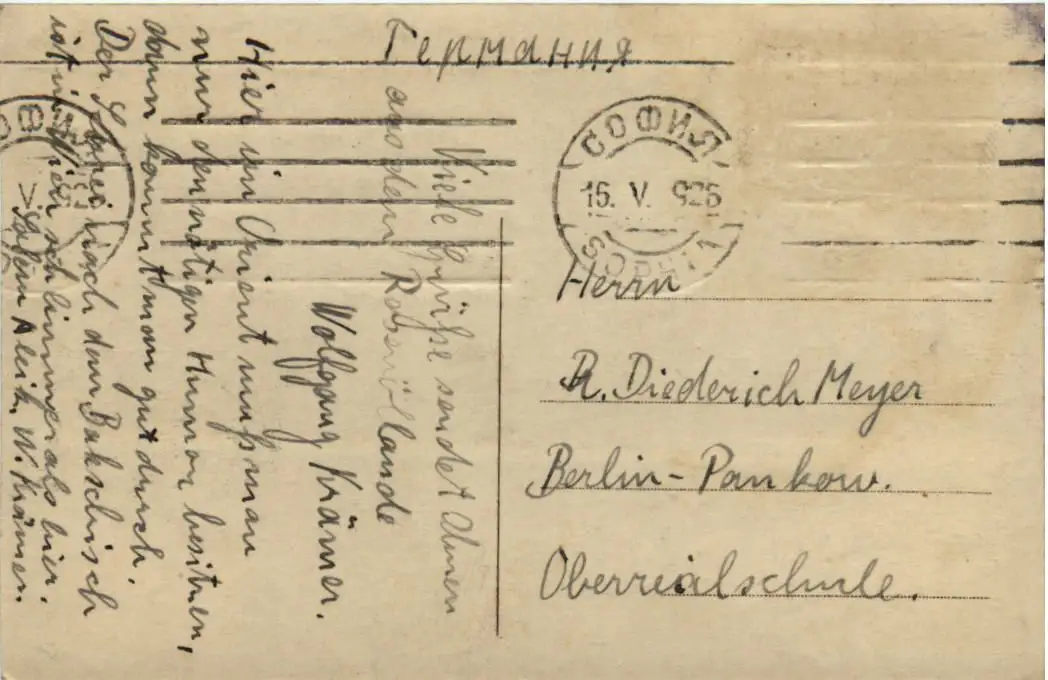 Германия
СОФИЯ
15. V. 926
SOPHIA 1
Herrn
R. Diederich Meyer
Berlin-Pankow.
Oberrealschule.
Viele Grüße sendet Ihnen
aus dem Rosenöllande
Wolfgang Krämer.
Hier im Orient muß man
nur den nötigen Humor besitzen,
dann kommt man gut durch.
Der Schrei nach dem Bakschisch
ist in Wien schlimmer als hier.
Salem Aleik. W. Krämer.